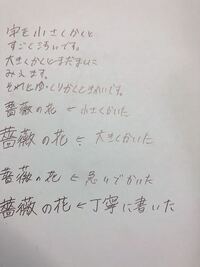 字を小さくかくと
すごくきたいです。
大きくかくとまだましに
みえます。
それとゆっくりかくときれいです。
薔薇の花 ← 小さくかいた
薔薇の花 ← 大きくかいた
薔薇の花 ← 急いでかいた
薔薇の花 ← 丁寧に書いた